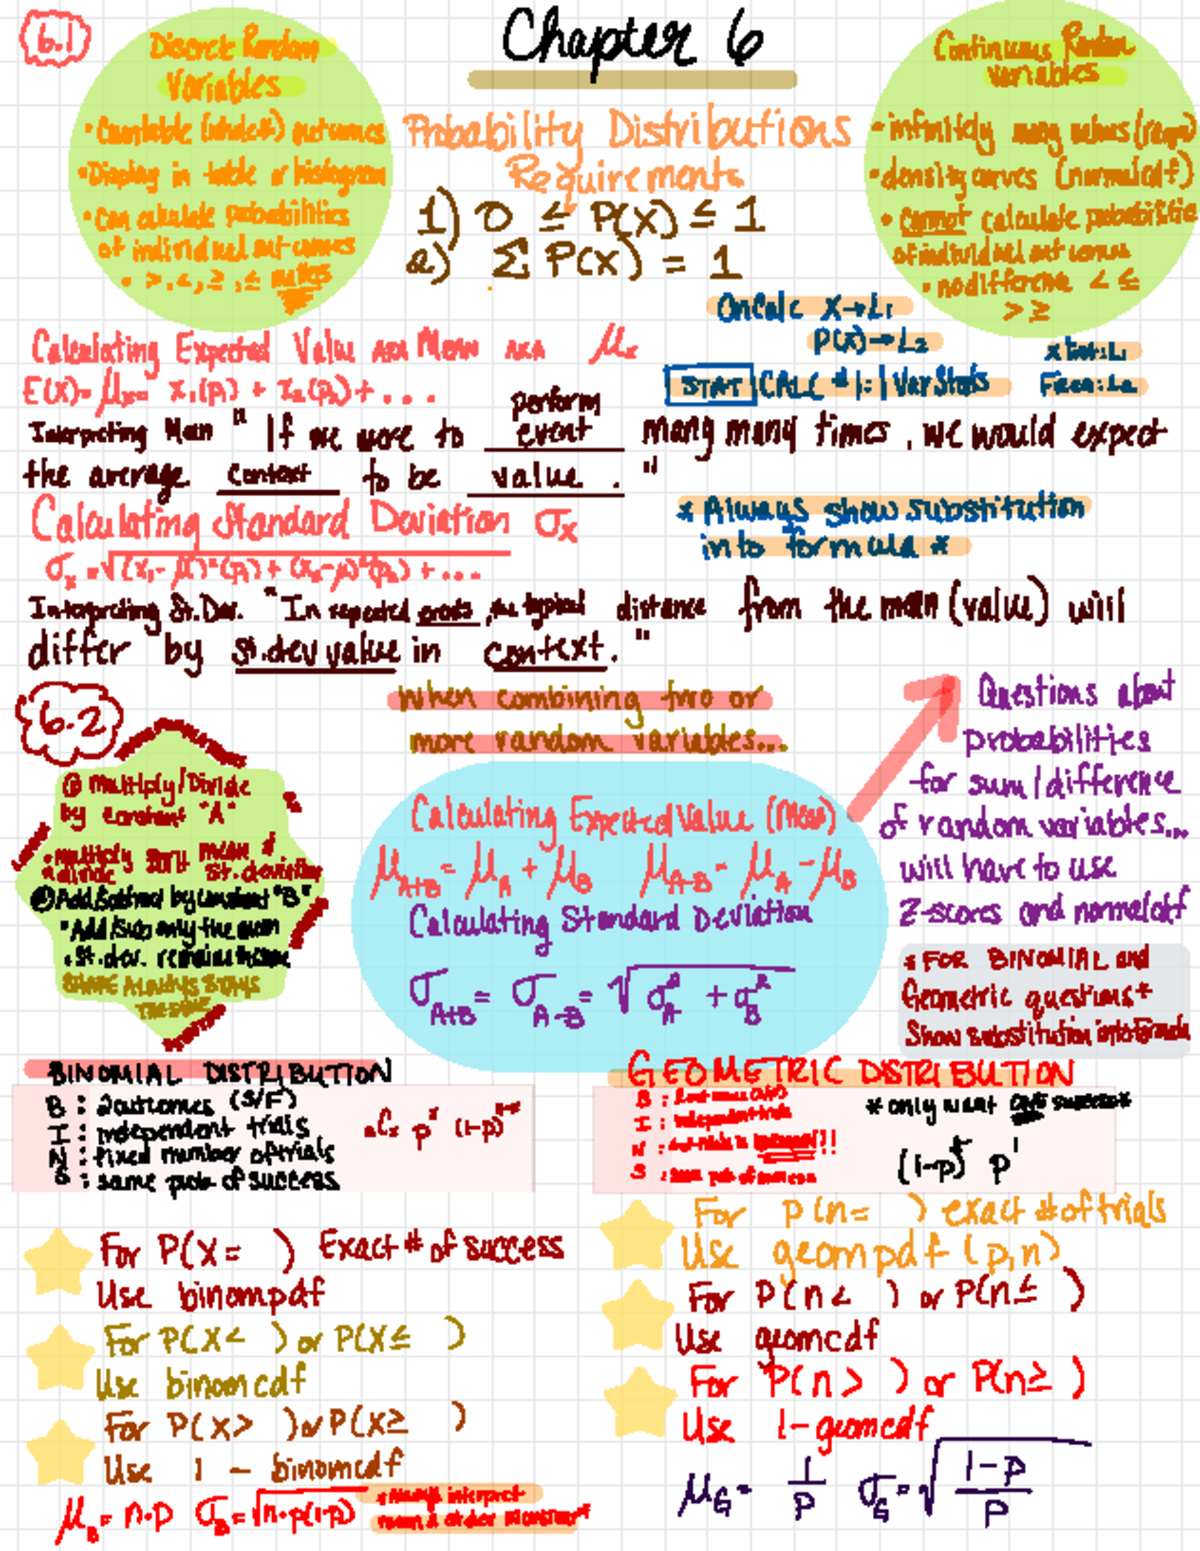 6.1
Chapter 6
Discrete Random
Variables
• Countable (whole #) outcomes
• Display in table or histogram
• Can calculate probabilities
of individual outcomes
• >, <, ≥, ≤ matters
Probability Distributions
Requirements
1) 0 ≤ P(X) ≤ 1
2) Σ P(X) = 1
Continuous Random
Variables
• infinitely many values (range)
• density curves (normalcdf)
• cannot calculate probabilities
of individual outcomes
• no difference < ≤
> ≥
On Calc X→L1
P(X)→L2
STAT CALC #1: 1 Var Stats
x list: L1
Freq: L2
Calculating Expected Value AKA Mean AKA μx
E(X) = μx = x1(p1) + x2(p2) + ...
Interpreting Mean " If we were to perform event many many times, we would expect
the average context to be value . "
Calculating Standard Deviation σx
σx = √(x1-μ)²(p1) + (x2-μ)²(p2) + ...
* Always show substitution
into formula *
Interpreting St.Dev. "In repeated , the typical distance from the mean (value) will
differ by St.dev value in context. "
6.2
① Multiply/Divide
by constant "A"
• multiply both mean &
divide St. deviation
② Add/Subtract by constant "B"
• Add/Sub only the mean
• St.dev. remains the same
SHAPE ALWAYS STAYS
THE SAME
When combining two or
more random variables...
Calculating Expected Value (Mean)
μA+B = μA + μB μA-B = μA - μB
Calculating Standard Deviation
σA+B = σA-B = √σ²A + σ²B
Questions about
probabilities
for sum/difference
of random variables...
will have to use
Z-scores and normalcdf
* FOR BINOMIAL and
Geometric questions *
Show substitution into formula
BINOMIAL DISTRIBUTION
B : 2 outcomes (S/F)
I : independent trials
N : fixed number of trials
S : same prob of success
nCx pˣ (1-p)ⁿ⁻ˣ
For P(X = ) Exact # of success
Use binompdf
For P(X < ) or P(X ≤ )
Use binomcdf
For P(X > ) or P(X ≥ )
Use 1 - binomcdf
μB = n·p σB = √n·p(1-p)
* Always interpret
GEOMETRIC DISTRIBUTION
B : 2 outcomes (S/F)
I : independent trials
S : same prob of success
* only want one success *
p¹
For P(n = ) exact # of trials
Use geompdf (p,n)
For P(n < ) or P(n ≤ )
Use geomcdf
For P(n > ) or P(n ≥ )
Use 1 - geomcdf
μG = 1/p σG = √(1-p)/p